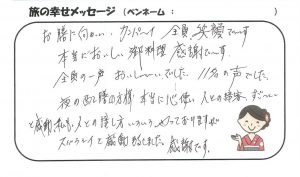 旅の幸せメッセージ（ペンネーム：　　　　）
お膳に向かい、カンパイ 全員 笑顔で〜す
本当においしい 御料理 感謝で〜す。
全員の一声 おいし〜いでした。11名の声でした。
本当に心使い 人との接客、すばらしい
と感動 私も、人との接し方 いろいろ やっておりますが
スバラシイと感動 しました。感謝です。